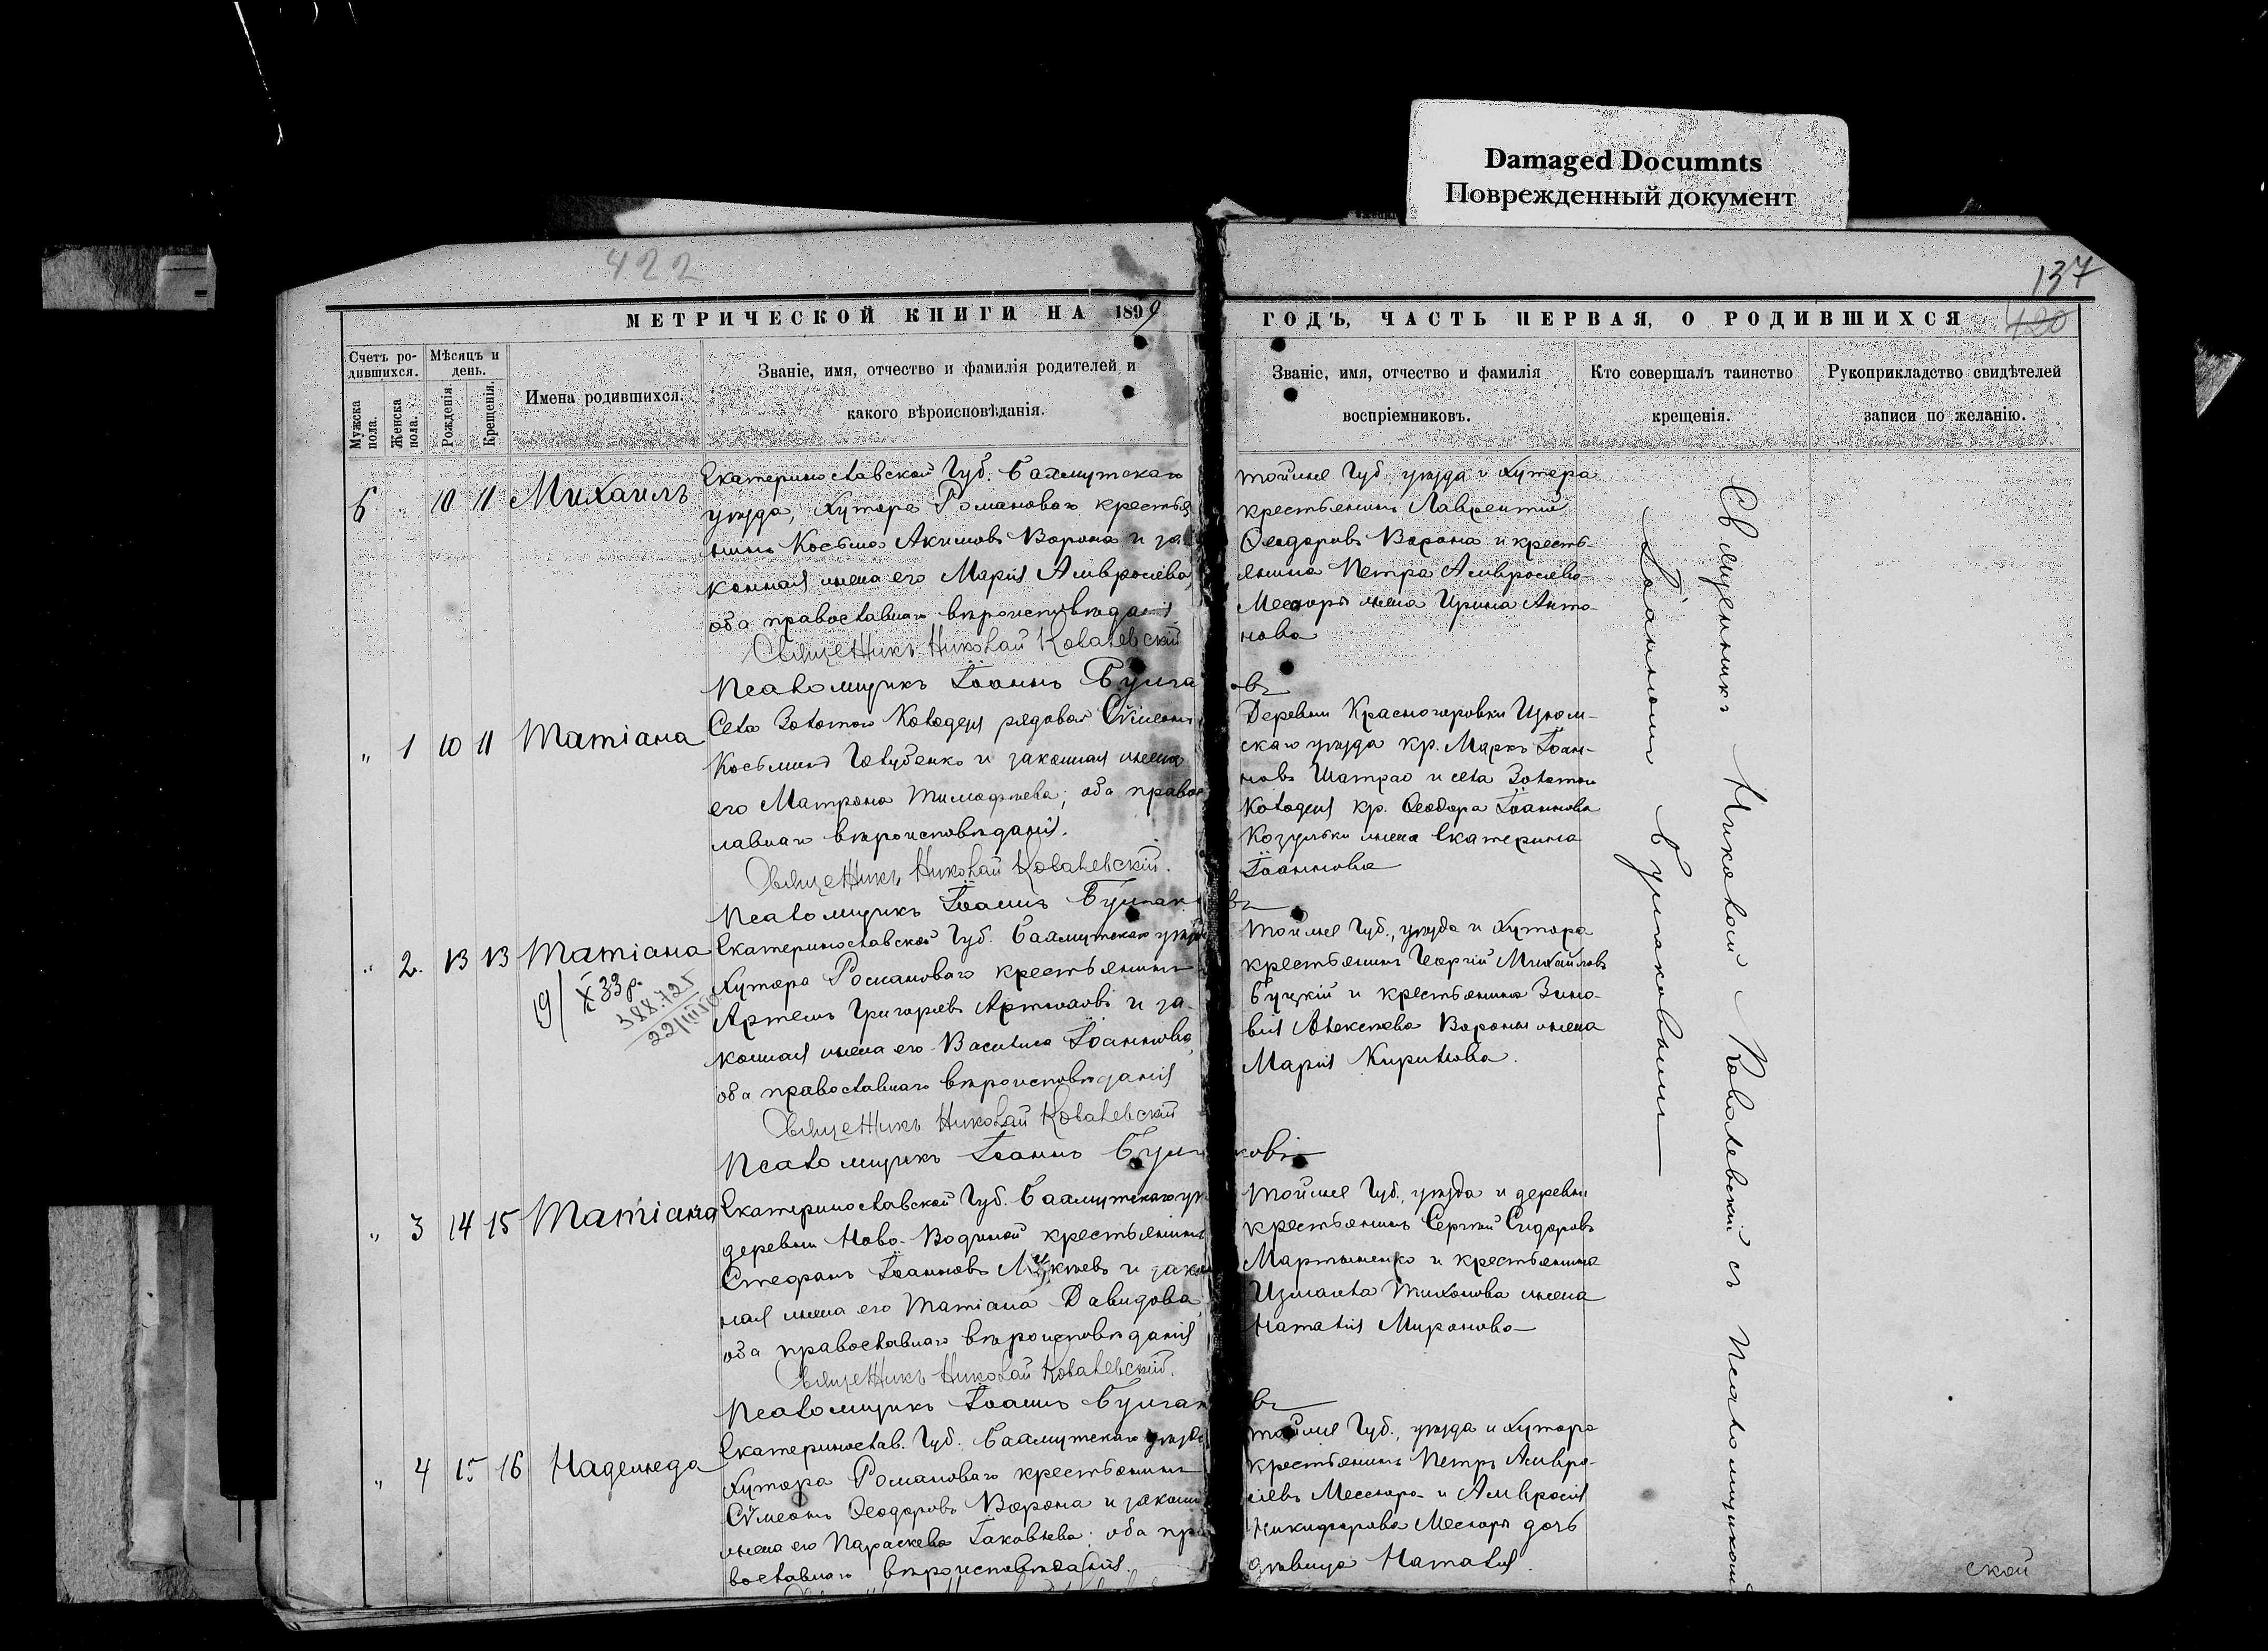 Damaged Documnts
Поврежденный документ
422
137
МЕТРИЧЕСКОЙ КНИГИ НА 1899
ГОДЪ, ЧАСТЬ ПЕРВАЯ, О РОДИВШИХСЯ
420
Счетъ ро-
дившихся.
Мѣсяцъ и
день.
Мужска
пола.
Женска
пола.
Рожденія.
Крещенія.
Имена родившихся.
Званіе, имя, отчество и фамилія родителей и
какого вѣроисповѣданія.
Званіе, имя, отчество и фамилія
воспріемниковъ.
Кто совершалъ таинство
крещенія.
Рукоприкладство свидѣтелей
записи по желанію.
10 11 Михаилъ
Екатеринославской Губ. Бахмутскаго
уѣзда, Хутора Романоваго крестья
нинъ Косьма Акимовъ Ворона и за
конная жена его Марія Амвросіева,
оба православнаго вѣроисповѣданія
Священникъ Николай Ковалевскій
Псаломщикъ Іоаннъ Булгаковъ
тойже Губ., уѣзда и Хутора
крестьянинъ Лаврентій
Ѳеодоровъ Ворона и кресть-
янина Петра Амвросіева
Месюры жена Ирина Анто-
нова
" 1 10 11 Татіана
Села Золотого Колодезя рядовой Сѵмеонъ
Косьминъ Голубенко и законная жена
его Матрона Тимофѣева; оба правос
лавнаго вѣроисповѣданія.
Священникъ Николай Ковалевскій.
Псаломщикъ Іоаннъ Булгаковъ
Деревни Красногоровки Изюм-
скаго уѣзда кр. Маркъ Іоан-
новъ Шатрао и села Золотого
Колодезя кр. Ѳеодора Іоаннова
Козульки жена Екатерина
Іоаннова
" 2. 13 13 Татіана
19/X 33 р.
388.725
Екатеринославской Губ. Бахмутскаго уѣзда
Хутора Романоваго крестьянинъ
Артемъ Григорьевъ Артюховъ и за-
конная жена его Василиса Іоаннова,
оба православнаго вѣроисповѣданія
Священникъ Николай Ковалевскій
Псаломщикъ Іоаннъ Булгаковъ
Тойже Губ., уѣзда и Хутора
крестьянинъ Георгій Михайловъ
Буцкій и крестьянина Зино-
вія Алексѣева Вороны жена
Марія Кирилова.
" 3 14 15 Татіана
Екатеринославской Губ. Бахмутскаго уѣ
деревни Ново-Водяной крестьянинъ
Стефанъ Іоанновъ и закон
ная жена его Татіана Давидова,
оба православнаго вѣроисповѣданія
Священникъ Николай Ковалевскій.
Псаломщикъ Іоаннъ Булгаковъ
Тойже Губ., уѣзда и деревни
крестьянинъ Сергѣй Сидоровъ
Мартыненко и крестьянина
Измаила Тихонова жена
Наталія Миронова
" 4 15 16 Надежда
Екатеринослав. Губ. Бахмутскаго уѣзда
Хутора Романоваго крестьянинъ
Сѵмеонъ Ѳеодоровъ Ворона и законн
жена его Параскева Іаковлева; оба пра
вославнаго вѣроисповѣданія.
тойже Губ., уѣзда и Хутора
крестьянинъ Петръ Амвро-
сіевъ Месюра и Амвросія
Никифорова Месюры дочь
дѣвица Наталія.
Священникъ Николай Ковалевскій съ Псаломщикомъ
Іоанномъ Булгаковымъ
ской